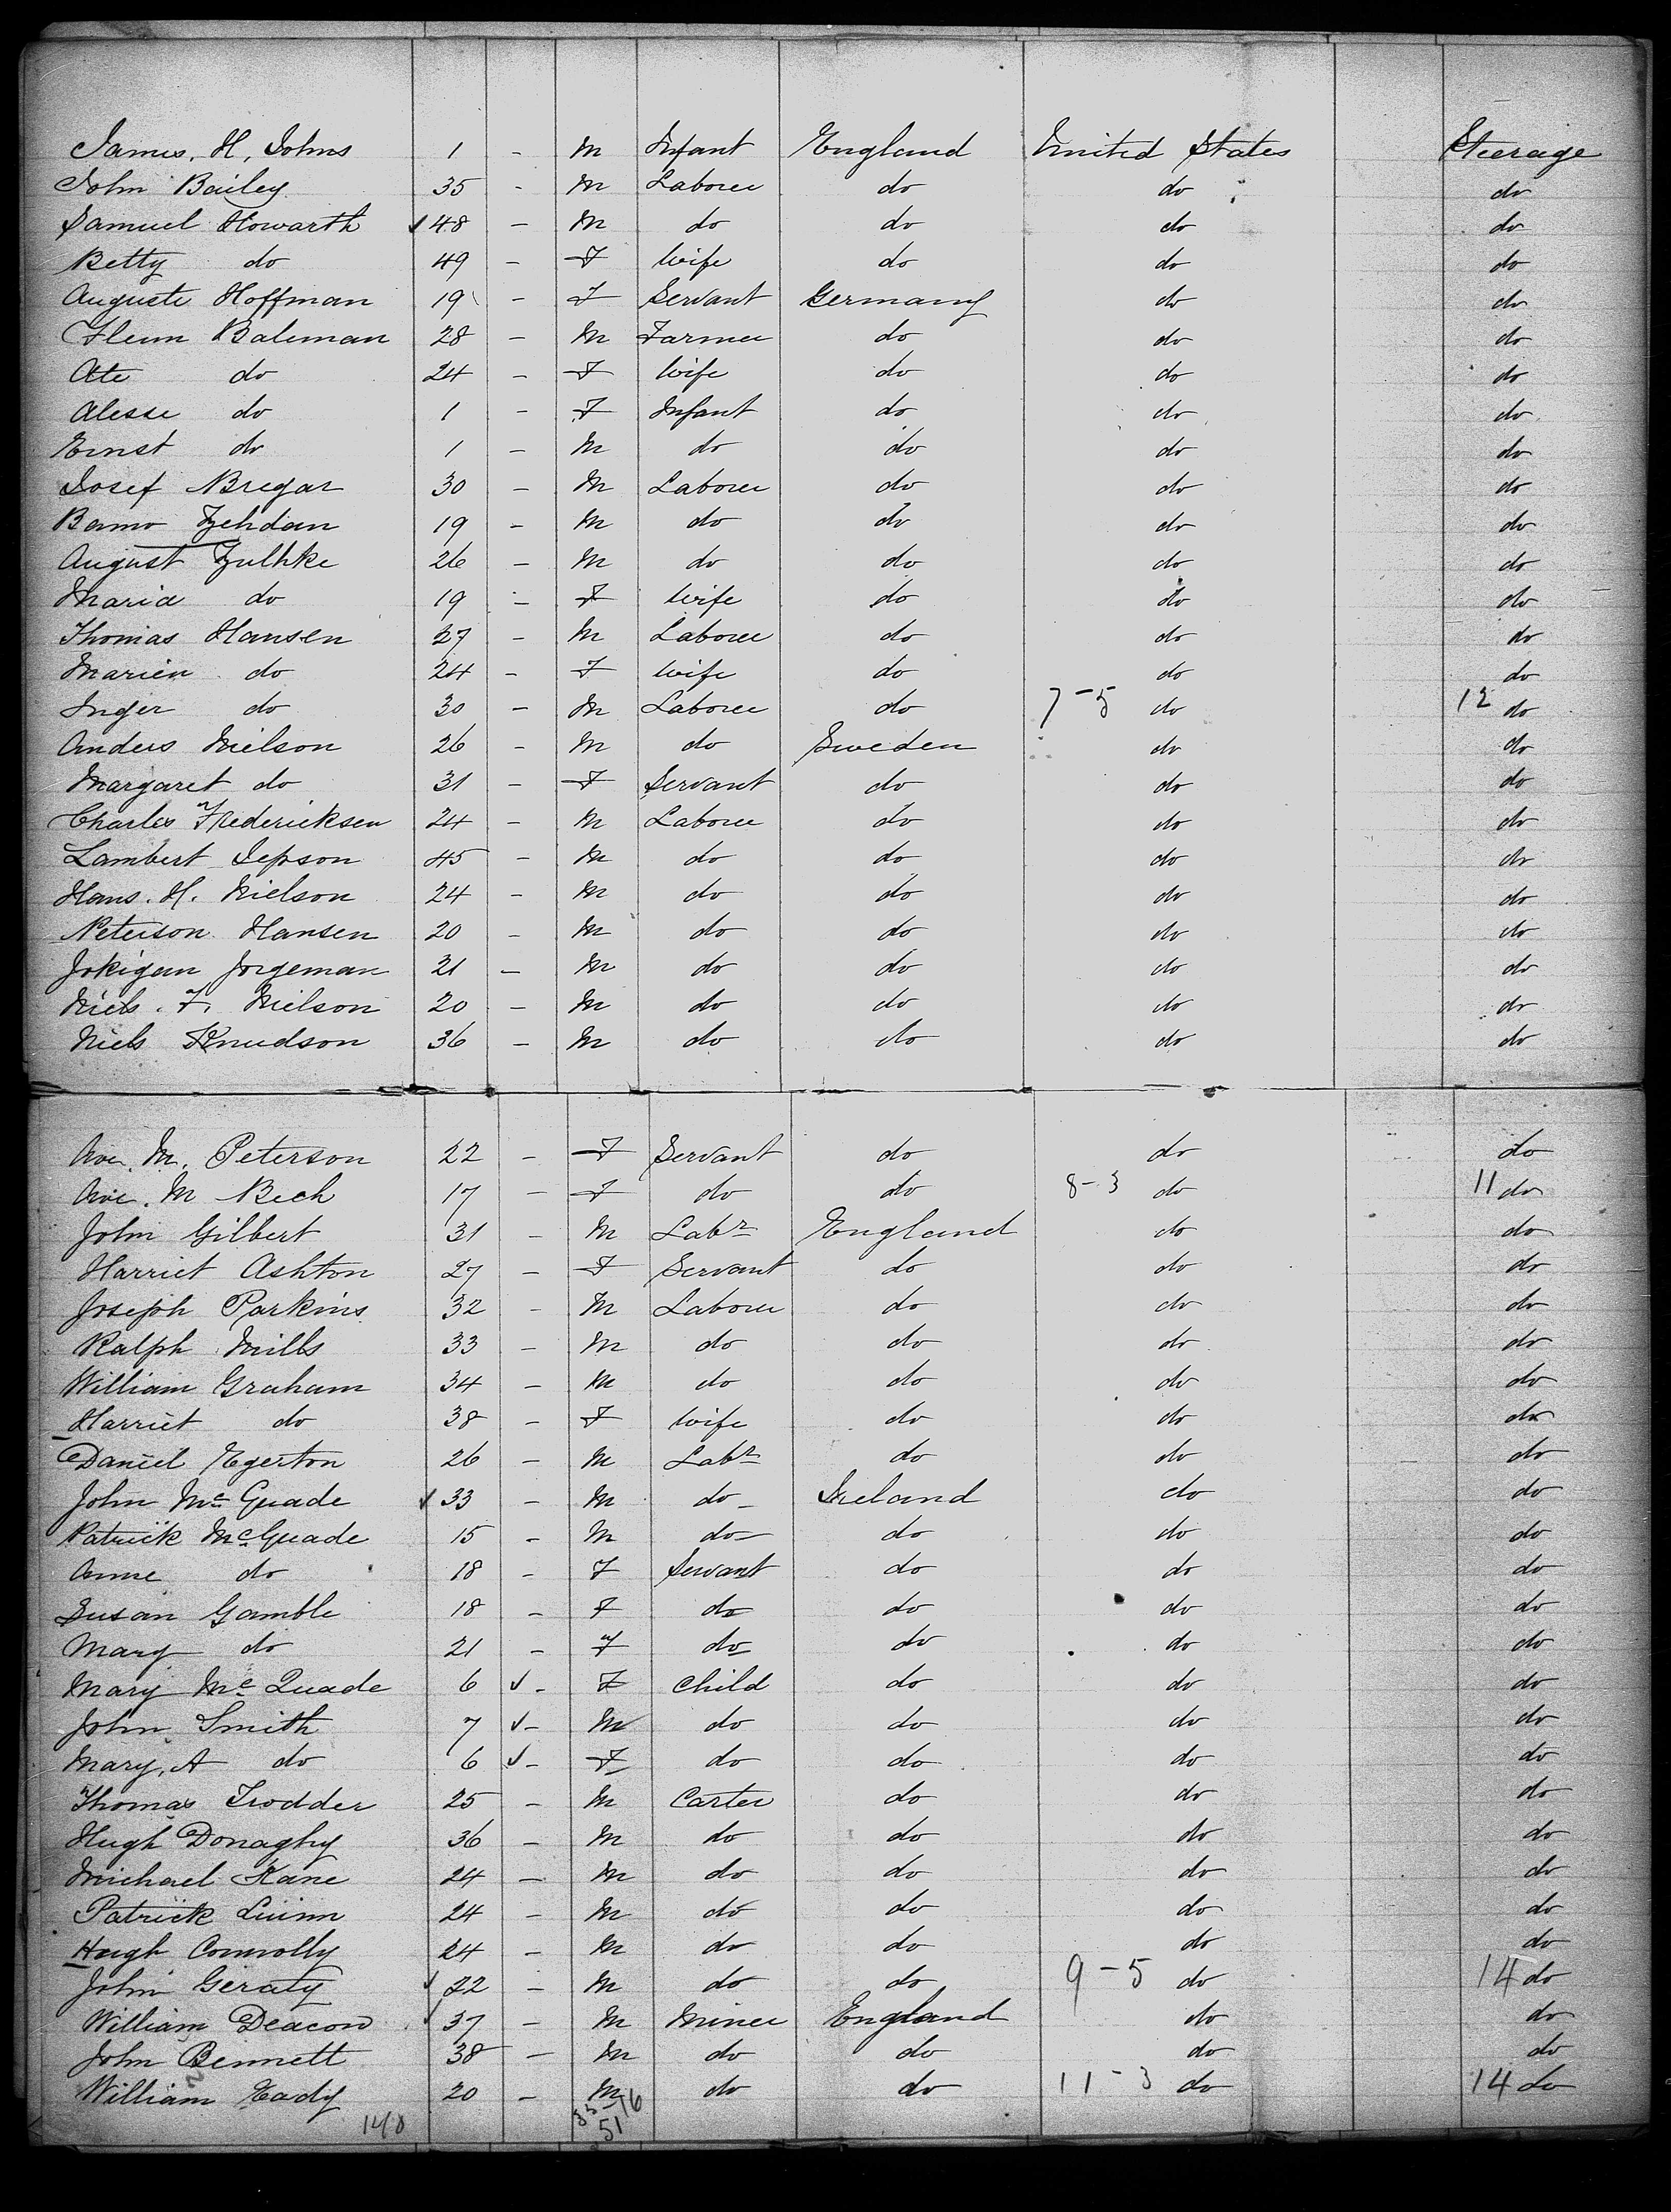 James. H. Johns 1 - M Infant England United States Steerage
John Bailey 35 - M Laborer do do do
Samuel Howarth ✓ 48 - M do do do do
Betty do 49 - F Wife do do do
Auguste Hoffman 19 - F Servant Germany do do
Baleman 28 - M Farmer do do do
Ate do 24 - F Wife do do do
Alesse do 1 - F Infant do do do
Ernst do 1 - M do do do do
Josef Bregar 30 - M Laborer do do do
19 - M do do do do
August 26 - M do do do do
Maria do 19 - F Wife do do do
Thomas Hansen 27 - M Laborer do do do
Marien do 24 - F Wife do do do
Inger do 30 - M Laborer do 7-5 do 12 do
Anders Nielson 26 - M do Sweden do do
Margaret do 31 - F Servant do do do
Charles Fredericksen 24 - M Laborer do do do
Lambert Jepson 45 - M do do do do
Hans. H. Nielson 24 - M do do do do
Peterson Hansen 20 - M do do do do
Jokigan Jorgeman 21 - M do do do do
Niels. F. Nielson 20 - M do do do do
Niels Knudson 36 - M do do do do
M. Peterson 22 - F Servant do do do
M Bech 17 - F do do 8-3 do 11 do
John Gilbert 31 - M Labr England do do
Harriet Ashton 27 - F Servant do do do
Joseph Parkins 32 - M Laborer do do do
Ralph Mills 33 - M do do do do
William Graham 34 - M do do do do
Harriet do 38 - F Wife do do do
Daniel Egerton 26 - M Labr do do do
John Mc Quade ✓ 33 - M do Ireland do do
Patrick McQuade 15 - M do do do do
Anne do 18 - F Servant do do do
Susan Gamble 18 - F do do do do
Mary do 21 - F do do do do
Mary Mc Quade 6 ✓ - F Child do do do
John Smith 7 ✓ - M do do do do
Mary. A do 6 ✓ - F do do do do
Thomas Trodder 25 - M Carter do do do
Hugh Donaghy 36 - M do do do do
Michael Kane 24 - M do do do do
Patrick Quinn 24 - M do do do do
Hugh Connolly 24 - M do do do do
John Geraty ✓ 22 - M do do 9-5 do 14 do
William Deacon ✓ 37 - M Miner England do do
John Bennett 38 - M do do do do
William Eady 20 - M do do 11-3 do 14 do
148 51